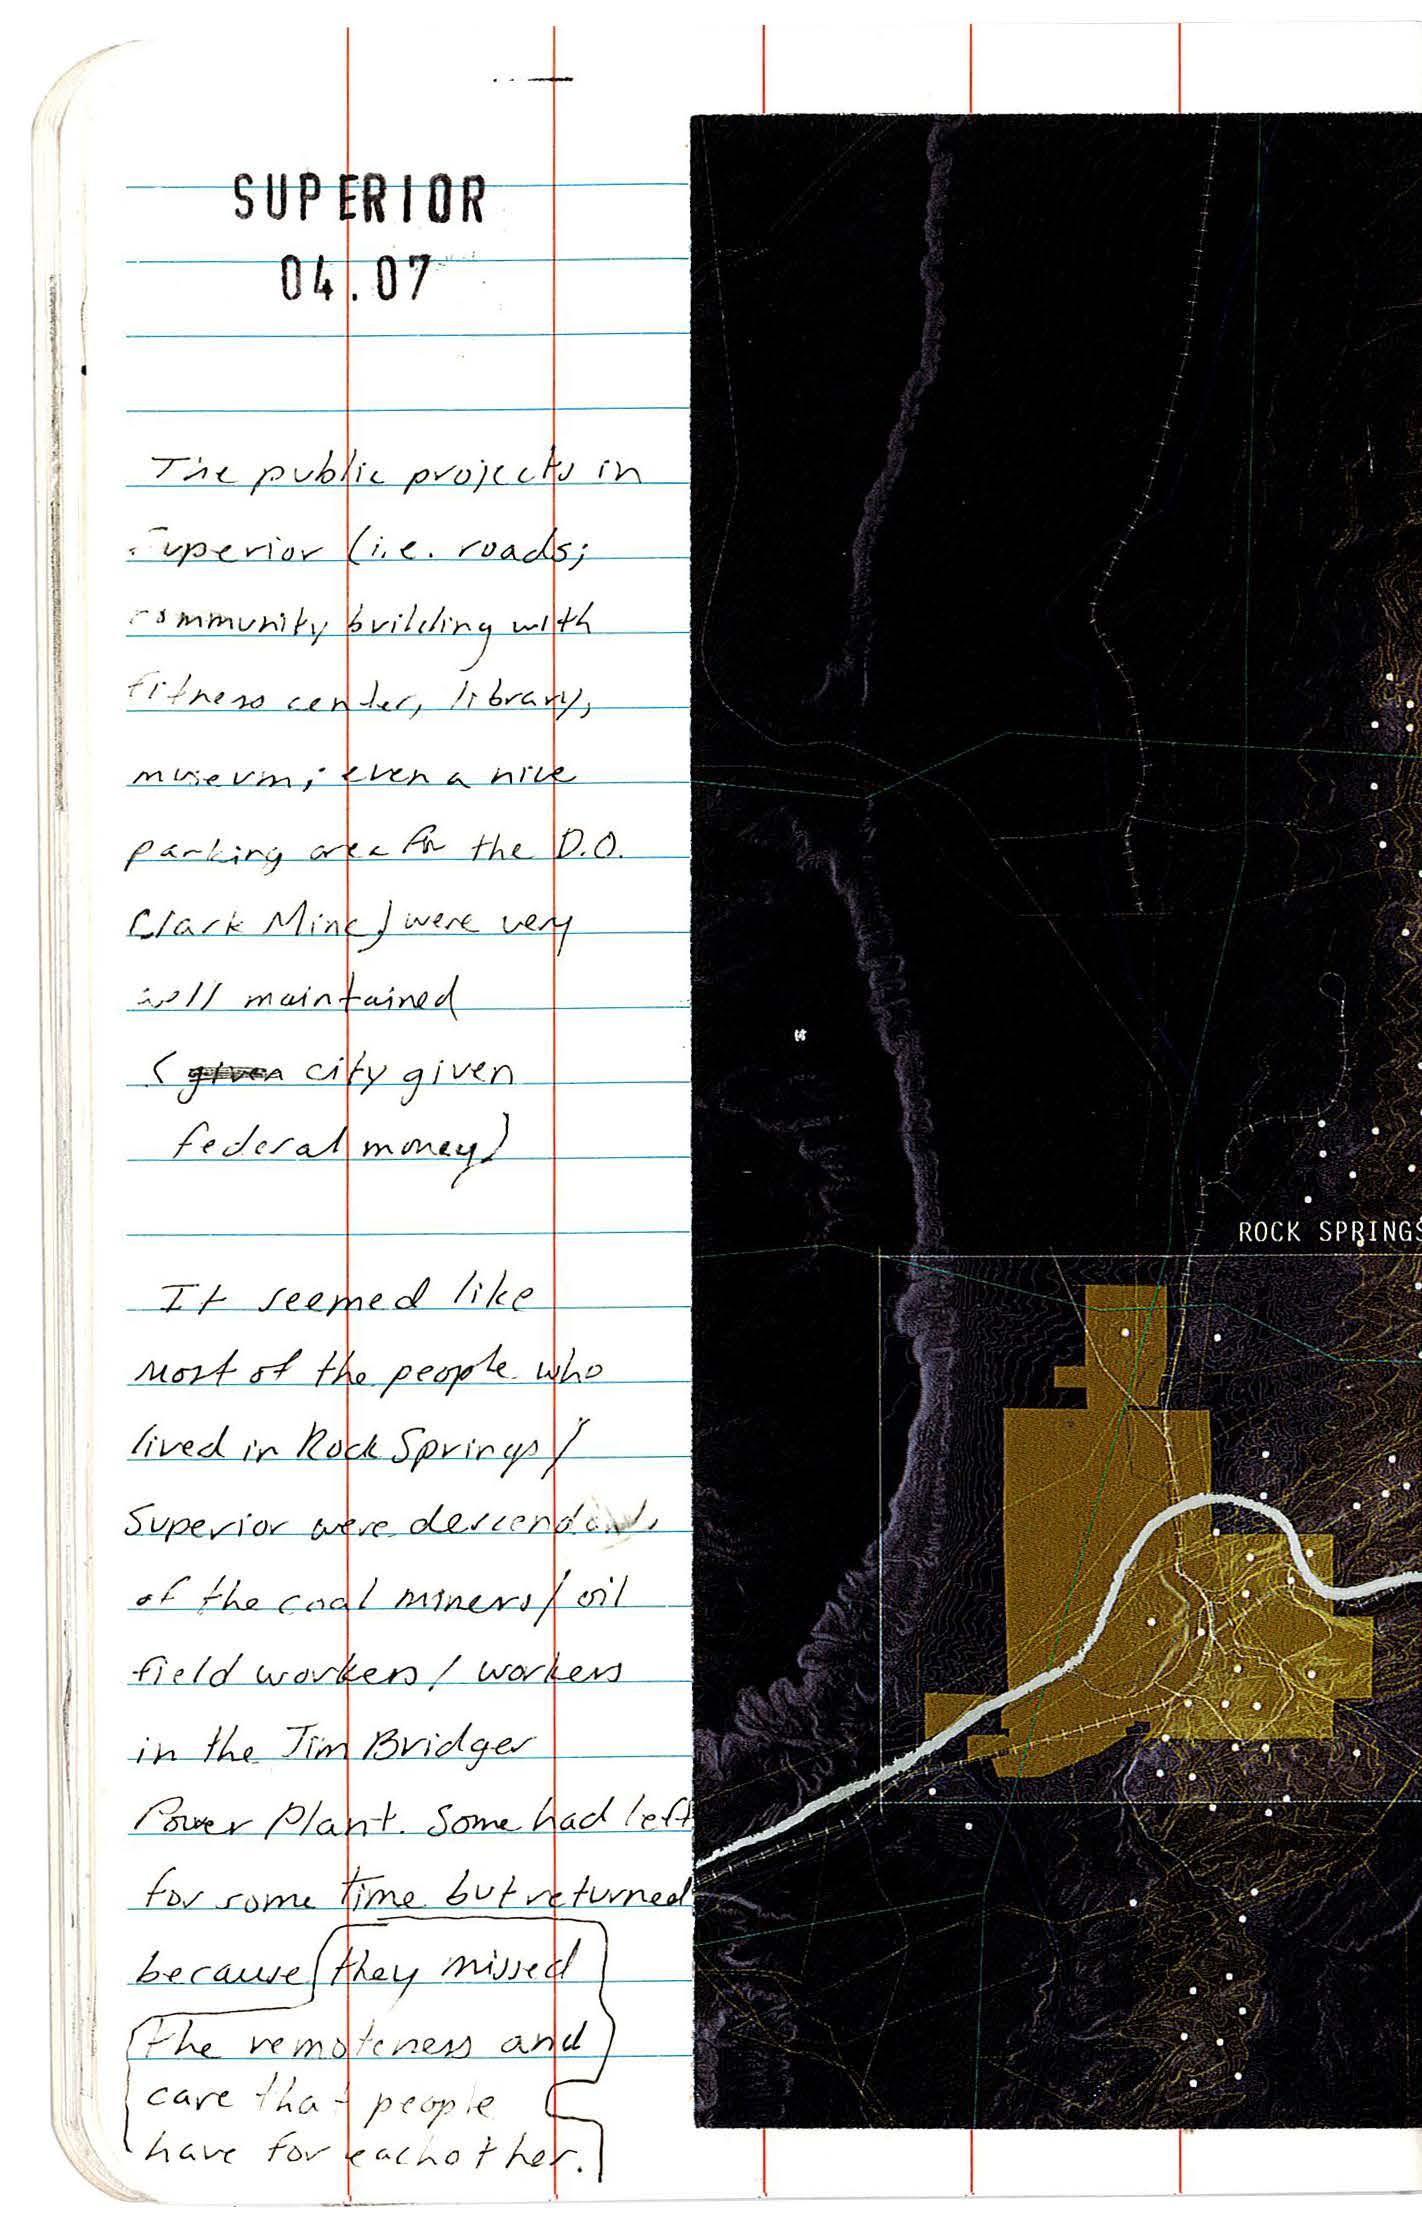 SUPERIOR
04.07
The public projects in
Superior (i.e. roads;
community building with
fitness center, library,
museum; even a nice
parking area for the D.O.
Clark Mine) were very
well maintained
(given city given
federal money)
It seemed like
most of the people who
lived in Rock Springs/
Superior were descendants
of the coal miners/oil
field workers/workers
in the Jim Bridger
Power Plant. Some had left
for some time but returned
because they missed
the remoteness and
care that people
have for eachother.
ROCK SPRINGS